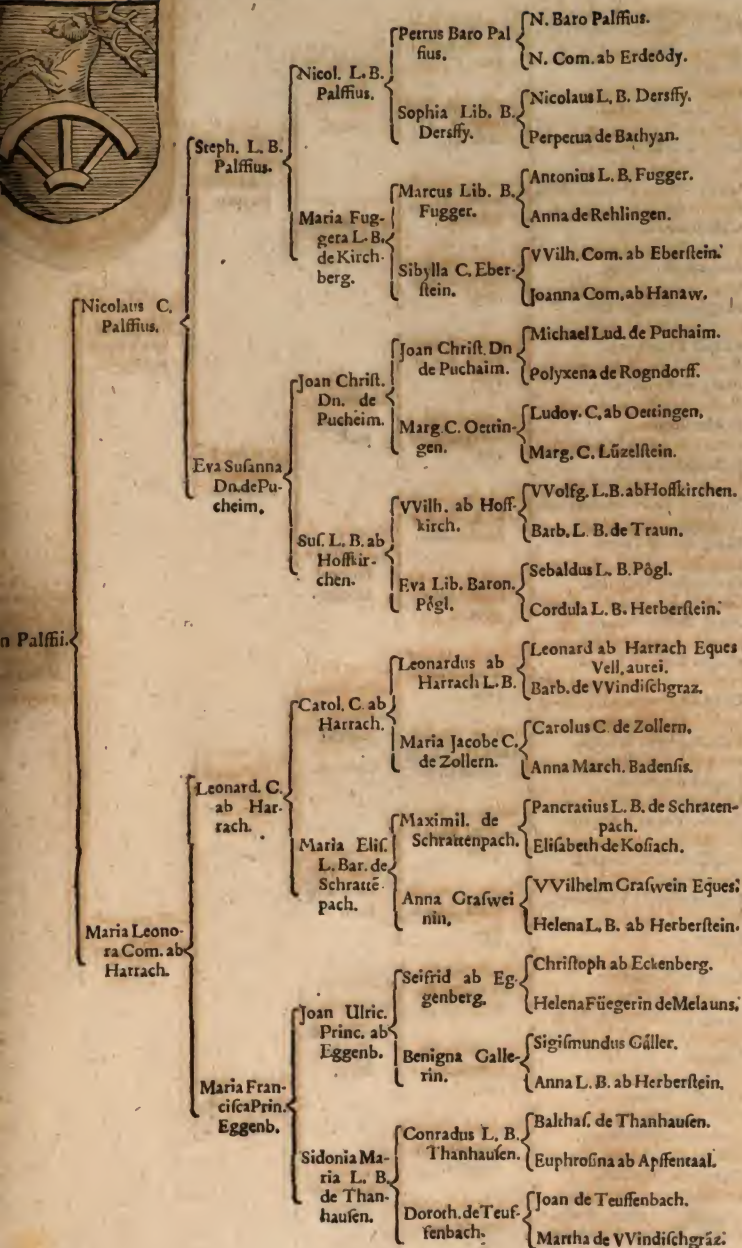 n Palffii.
Nicolaus C.
Palffius.
Maria Leono-
ra Com. ab
Harrach.
Steph. L. B.
Palffius.
Eva Susanna
Dn. de Pu-
cheim.
Leonard. C.
ab Har-
rach.
Maria Fran-
cisca Prin.
Eggenb.
Nicol. L. B.
Palffius.
Maria Fug-
gera L. B.
de Kirch-
berg.
Joan Christ.
Dn. de
Pucheim.
Sus. L. B. ab
Hoffkir-
chen.
Carol. C. ab
Harrach.
Maria Elis.
L. Bar. de
Schrattē
pach.
Joan Ulric.
Princ. ab
Eggenb.
Sidonia Ma-
ria L. B.
de Than-
hausen.
Petrus Baro Pal
fius.
Sophia Lib. B.
Dersffy.
Marcus Lib. B.
Fugger.
Sibylla C. Eber-
stein.
Joan Christ. Dn
de Puchaim.
Marg. C. Oettin-
gen.
VVilh. ab Hoff-
kirch.
Eva Lib. Baron.
Pögl.
Leonardus ab
Harrach L. B.
Maria Jacobe C.
de Zollern.
Maximil. de
Schrattenpach.
Anna Graswei
nin.
Seifrid ab Eg-
genberg.
Benigna Galle-
rin.
Conradus L. B.
Thanhausen.
Doroth. de Teuf-
fenbach.
N. Baro Palffius.
N. Com. ab Erdeödy.
Nicolaus L. B. Dersffy.
Perpetua de Bathyan.
Antonius L. B. Fugger.
Anna de Rehlingen.
VVilh. Com. ab Eberstein.
Joanna Com. ab Hanaw.
Michael Lud. de Puchaim.
Polyxena de Rogndorff.
Ludov. C. ab Oettingen.
Marg. C. Lüzelstein.
VVolfg. L. B. ab Hoffkirchen.
Barb. L. B. de Traun.
Sebaldus L. B. Pögl.
Cordula L. B. Herberstein.
Leonard ab Harrach Eques
Vell. aurei.
Barb. de VVindischgraz.
Carolus C. de Zollern.
Anna March. Badensis.
Pancratius L. B. de Schraten-
pach.
Elisabeth de Kosiach.
VVilhelm Graswein Eques.
Helena L. B. ab Herberstein.
Christoph ab Eckenberg.
Helena Füegerin de Melauns.
Sigismundus Gäller.
Anna L. B. ab Herberstein.
Balthas. de Thanhausen.
Euphrosina ab Apffentaal.
Joan de Teuffenbach.
Martha de VVindischgräz.